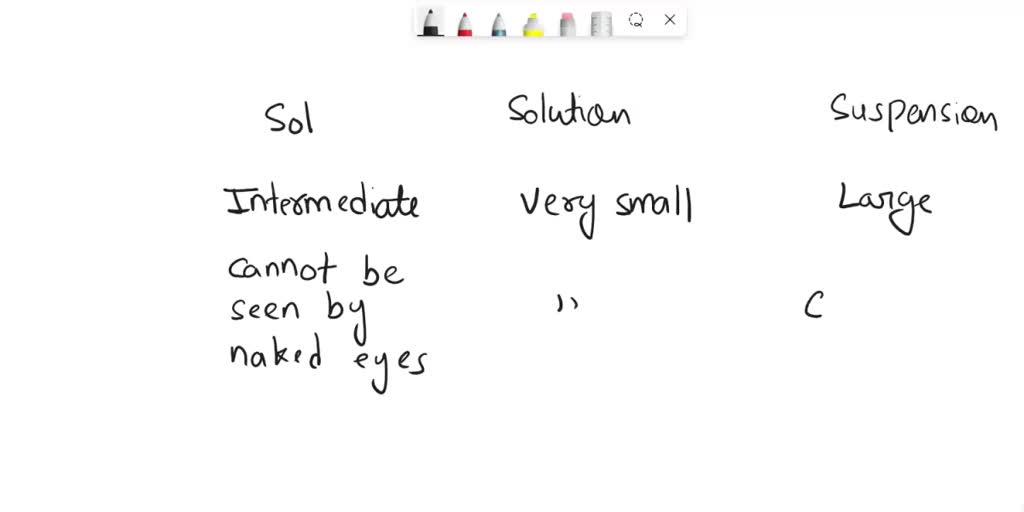 Sol Solution Suspension
Intermediate very small Large
cannot be
seen by " C
naked eyes